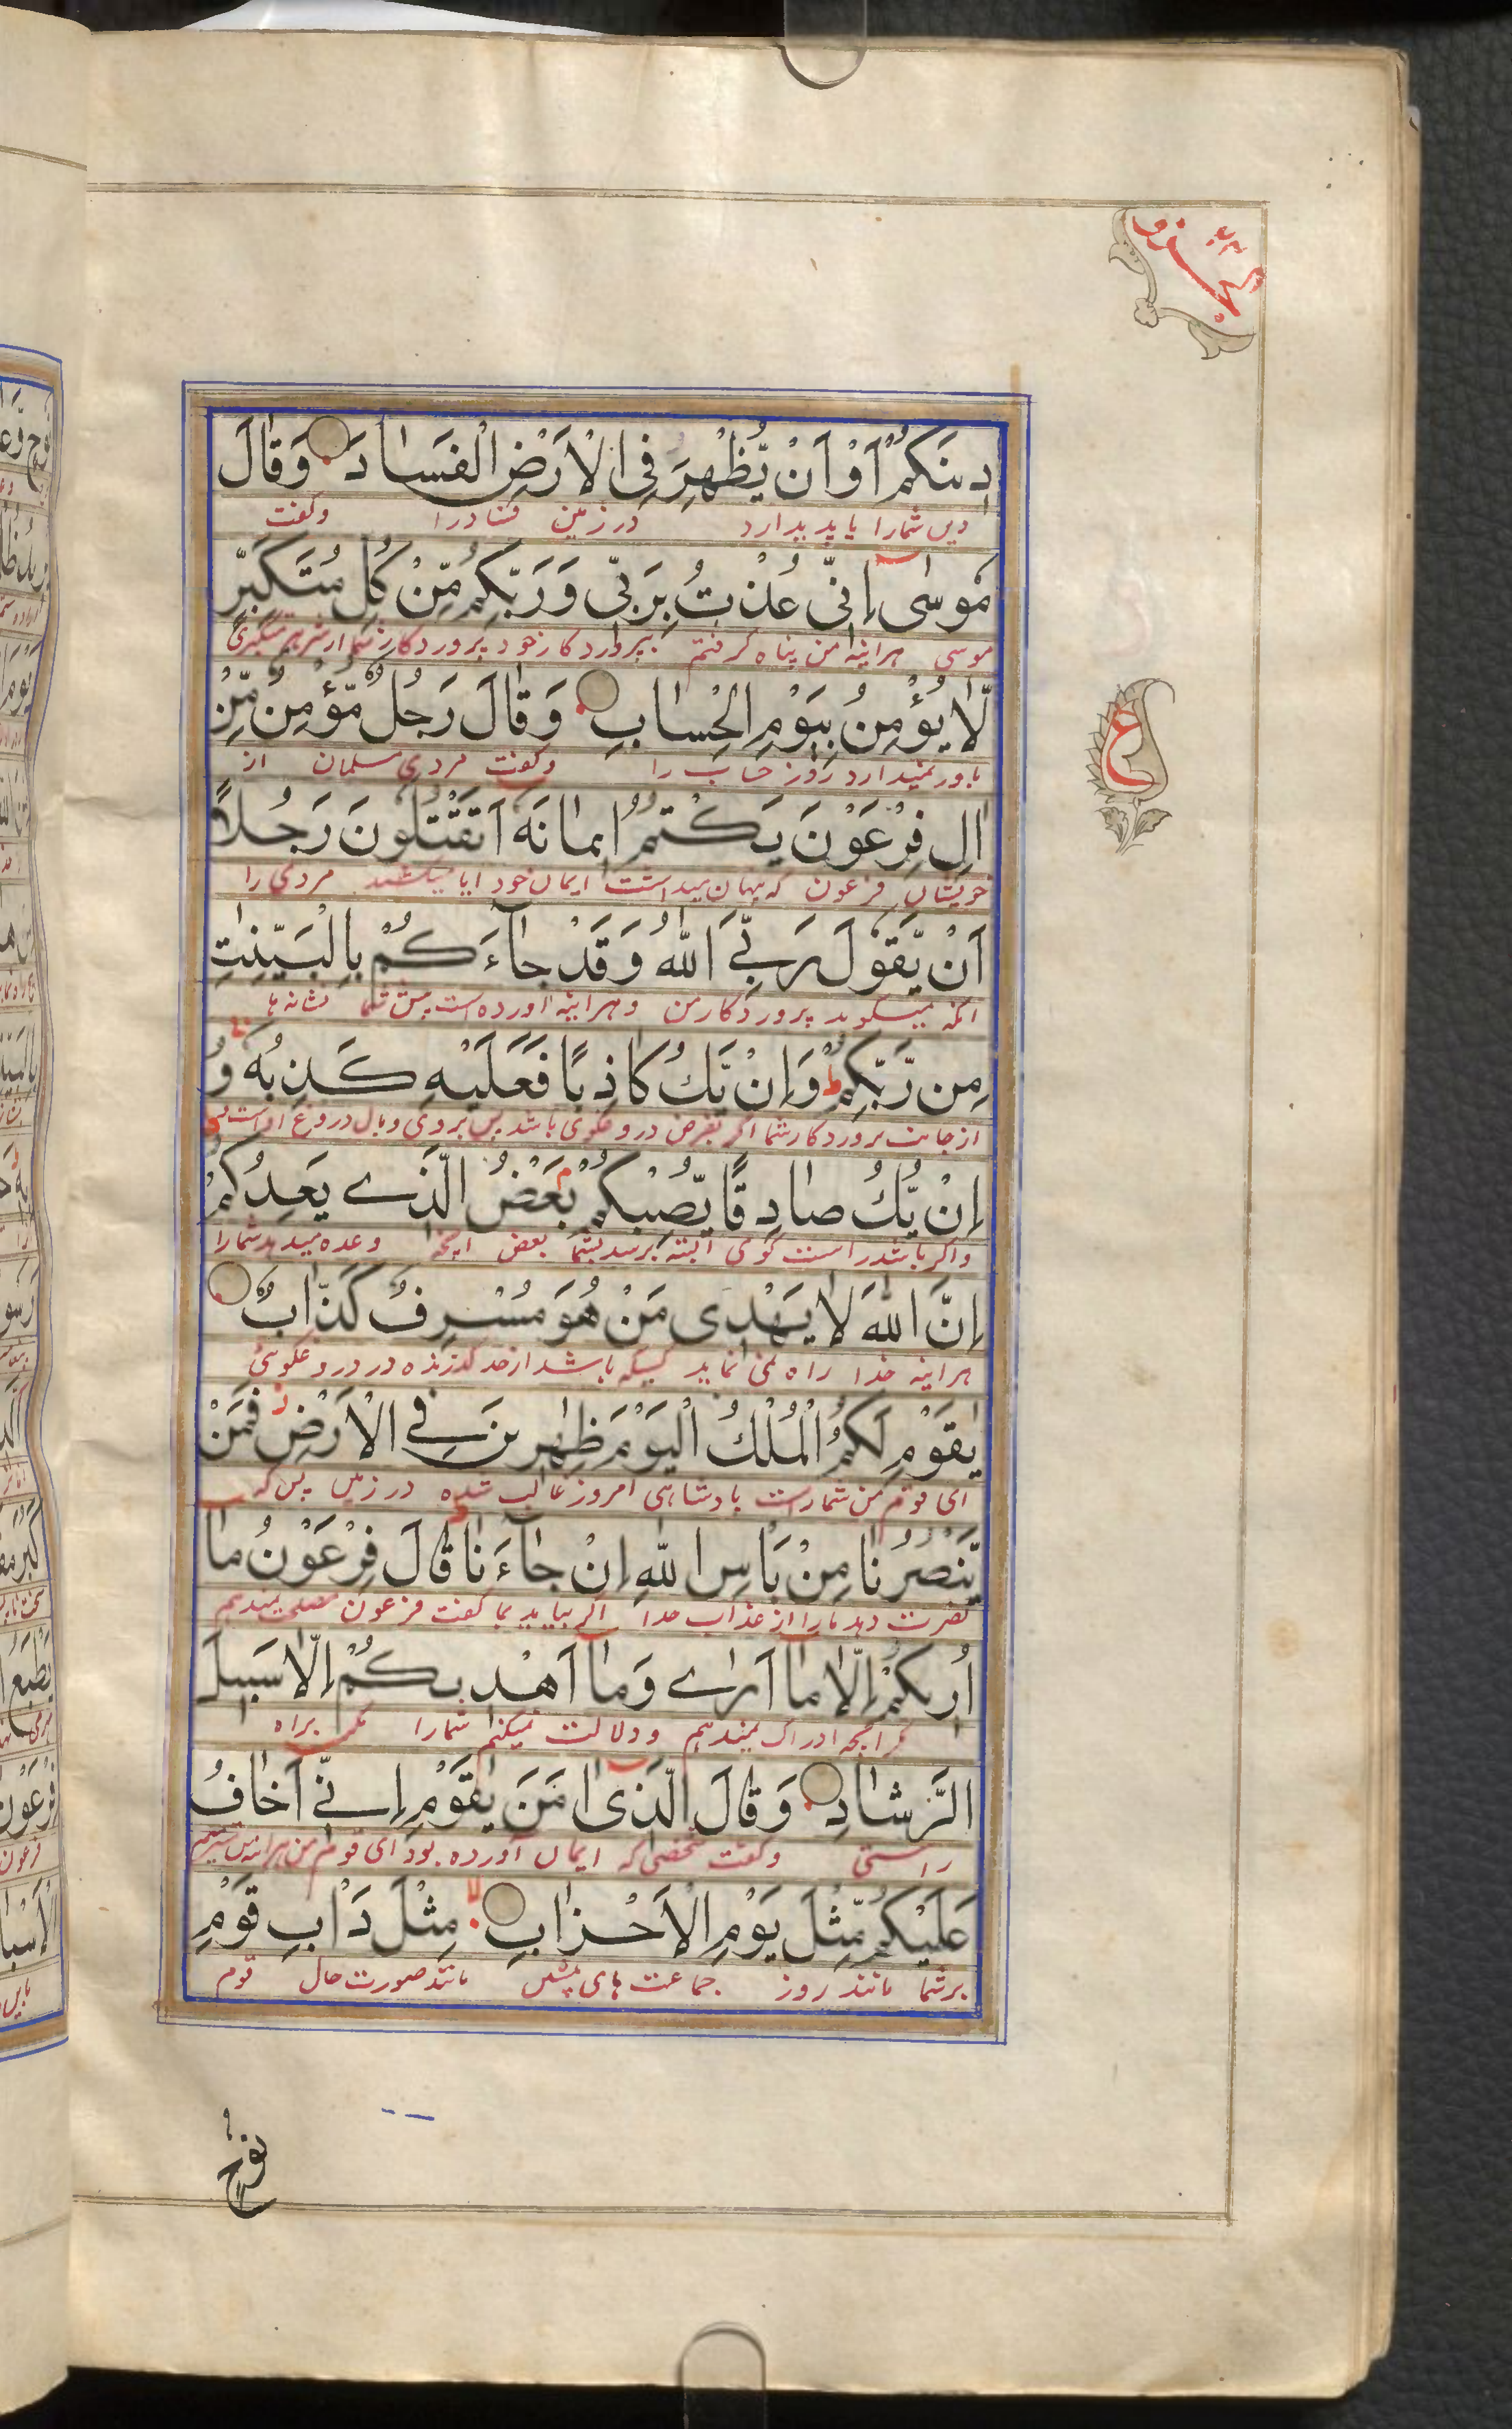 الجزو ٢٤
دِينَكُمْ اَوْ اَنْ يُّظْهِرَ فِى الْاَرْضِ الْفَسَادَ وَقَالَ
دین شما را یا پدید ارد در زمین فساد را و گفت
مُوسٰى اِنِّى عُذْتُ بِرَبِّى وَرَبِّكُمْ مِّنْ كُلِّ مُتَكَبِّرٍ
موسی هراینه من پناه گرفتم بپروردگار خود و پروردگار شما از شر هر متکبری
لَّا يُؤْمِنُ بِيَوْمِ الْحِسَابِ وَقَالَ رَجُلٌ مُّؤْمِنٌ مِّنْ
باور نمیدارد روز حساب را و گفت مردی مسلمان از
اٰلِ فِرْعَوْنَ يَكْتُمُ اِيمَانَهٗ اَتَقْتُلُونَ رَجُلًا
خویشان فرعون که پنهان میداشت ایمان خود ایا میکشید مردی را
اَنْ يَّقُولَ رَبِّيَ اللّٰهُ وَقَدْ جَآءَكُمْ بِالْبَيِّنٰتِ
انکه میگوید پروردگار من و هراینه آورده است پیش شما نشانه ها
مِن رَّبِّكُمْ ط وَاِنْ يَّكُ كَاذِبًا فَعَلَيْهِ كَذِبُهٗ وَ
از جانب پروردگار شما اگر بفرض دروغگوی باشد پس بروی وبال دروغ اوست
اِنْ يَّكُ صَادِقًا يُّصِبْكُمْ بَعْضُ الَّذِے يَعِدُكُمْ
واگر باشد راست گوی البته برسد بشما بعض انچه وعده میدهد شما را
اِنَّ اللّٰهَ لَا يَهْدِى مَنْ هُوَ مُسْرِفٌ كَذَّابٌ
هراینه خدا راه نمی نماید کسیکه باشد از حد گذرنده در دروغگوئی
يٰقَوْمِ لَكُمُ الْمُلْكُ الْيَوْمَ ظٰهِرِينَ فِے الْاَرْضِ فَمَنْ
ای قوم من شماراست پادشاهی امروز غالب شده در زمین پس که
يَّنْصُرُنَا مِنْ بَاْسِ اللّٰهِ اِنْ جَآءَنَا قَالَ فِرْعَوْنُ مَا
نصرت دهد ما را از عذاب خدا اگر بیاید بما گفت فرعون
اُرِيكُمْ اِلَّا مَا اَرٰے وَمَا اَهْدِيكُمْ اِلَّا سَبِيلَ
انچه ادراک میدهم و دلالت نمیکنم شما را مگر براه
الرَّشَادِ وَقَالَ الَّذِى اٰمَنَ يٰقَوْمِ اِنِّے اَخَافُ
راستی و گفت شخصی که ایمان آورده بود ای قوم من هراینه من میترسم
عَلَيْكُمْ مِّثْلَ يَوْمِ الْاَحْزَابِ لا مِثْلَ دَاْبِ قَوْمِ
بر شما مانند روز جماعت های پیشین مانند صورت حال قوم
ع
نُوحٍ